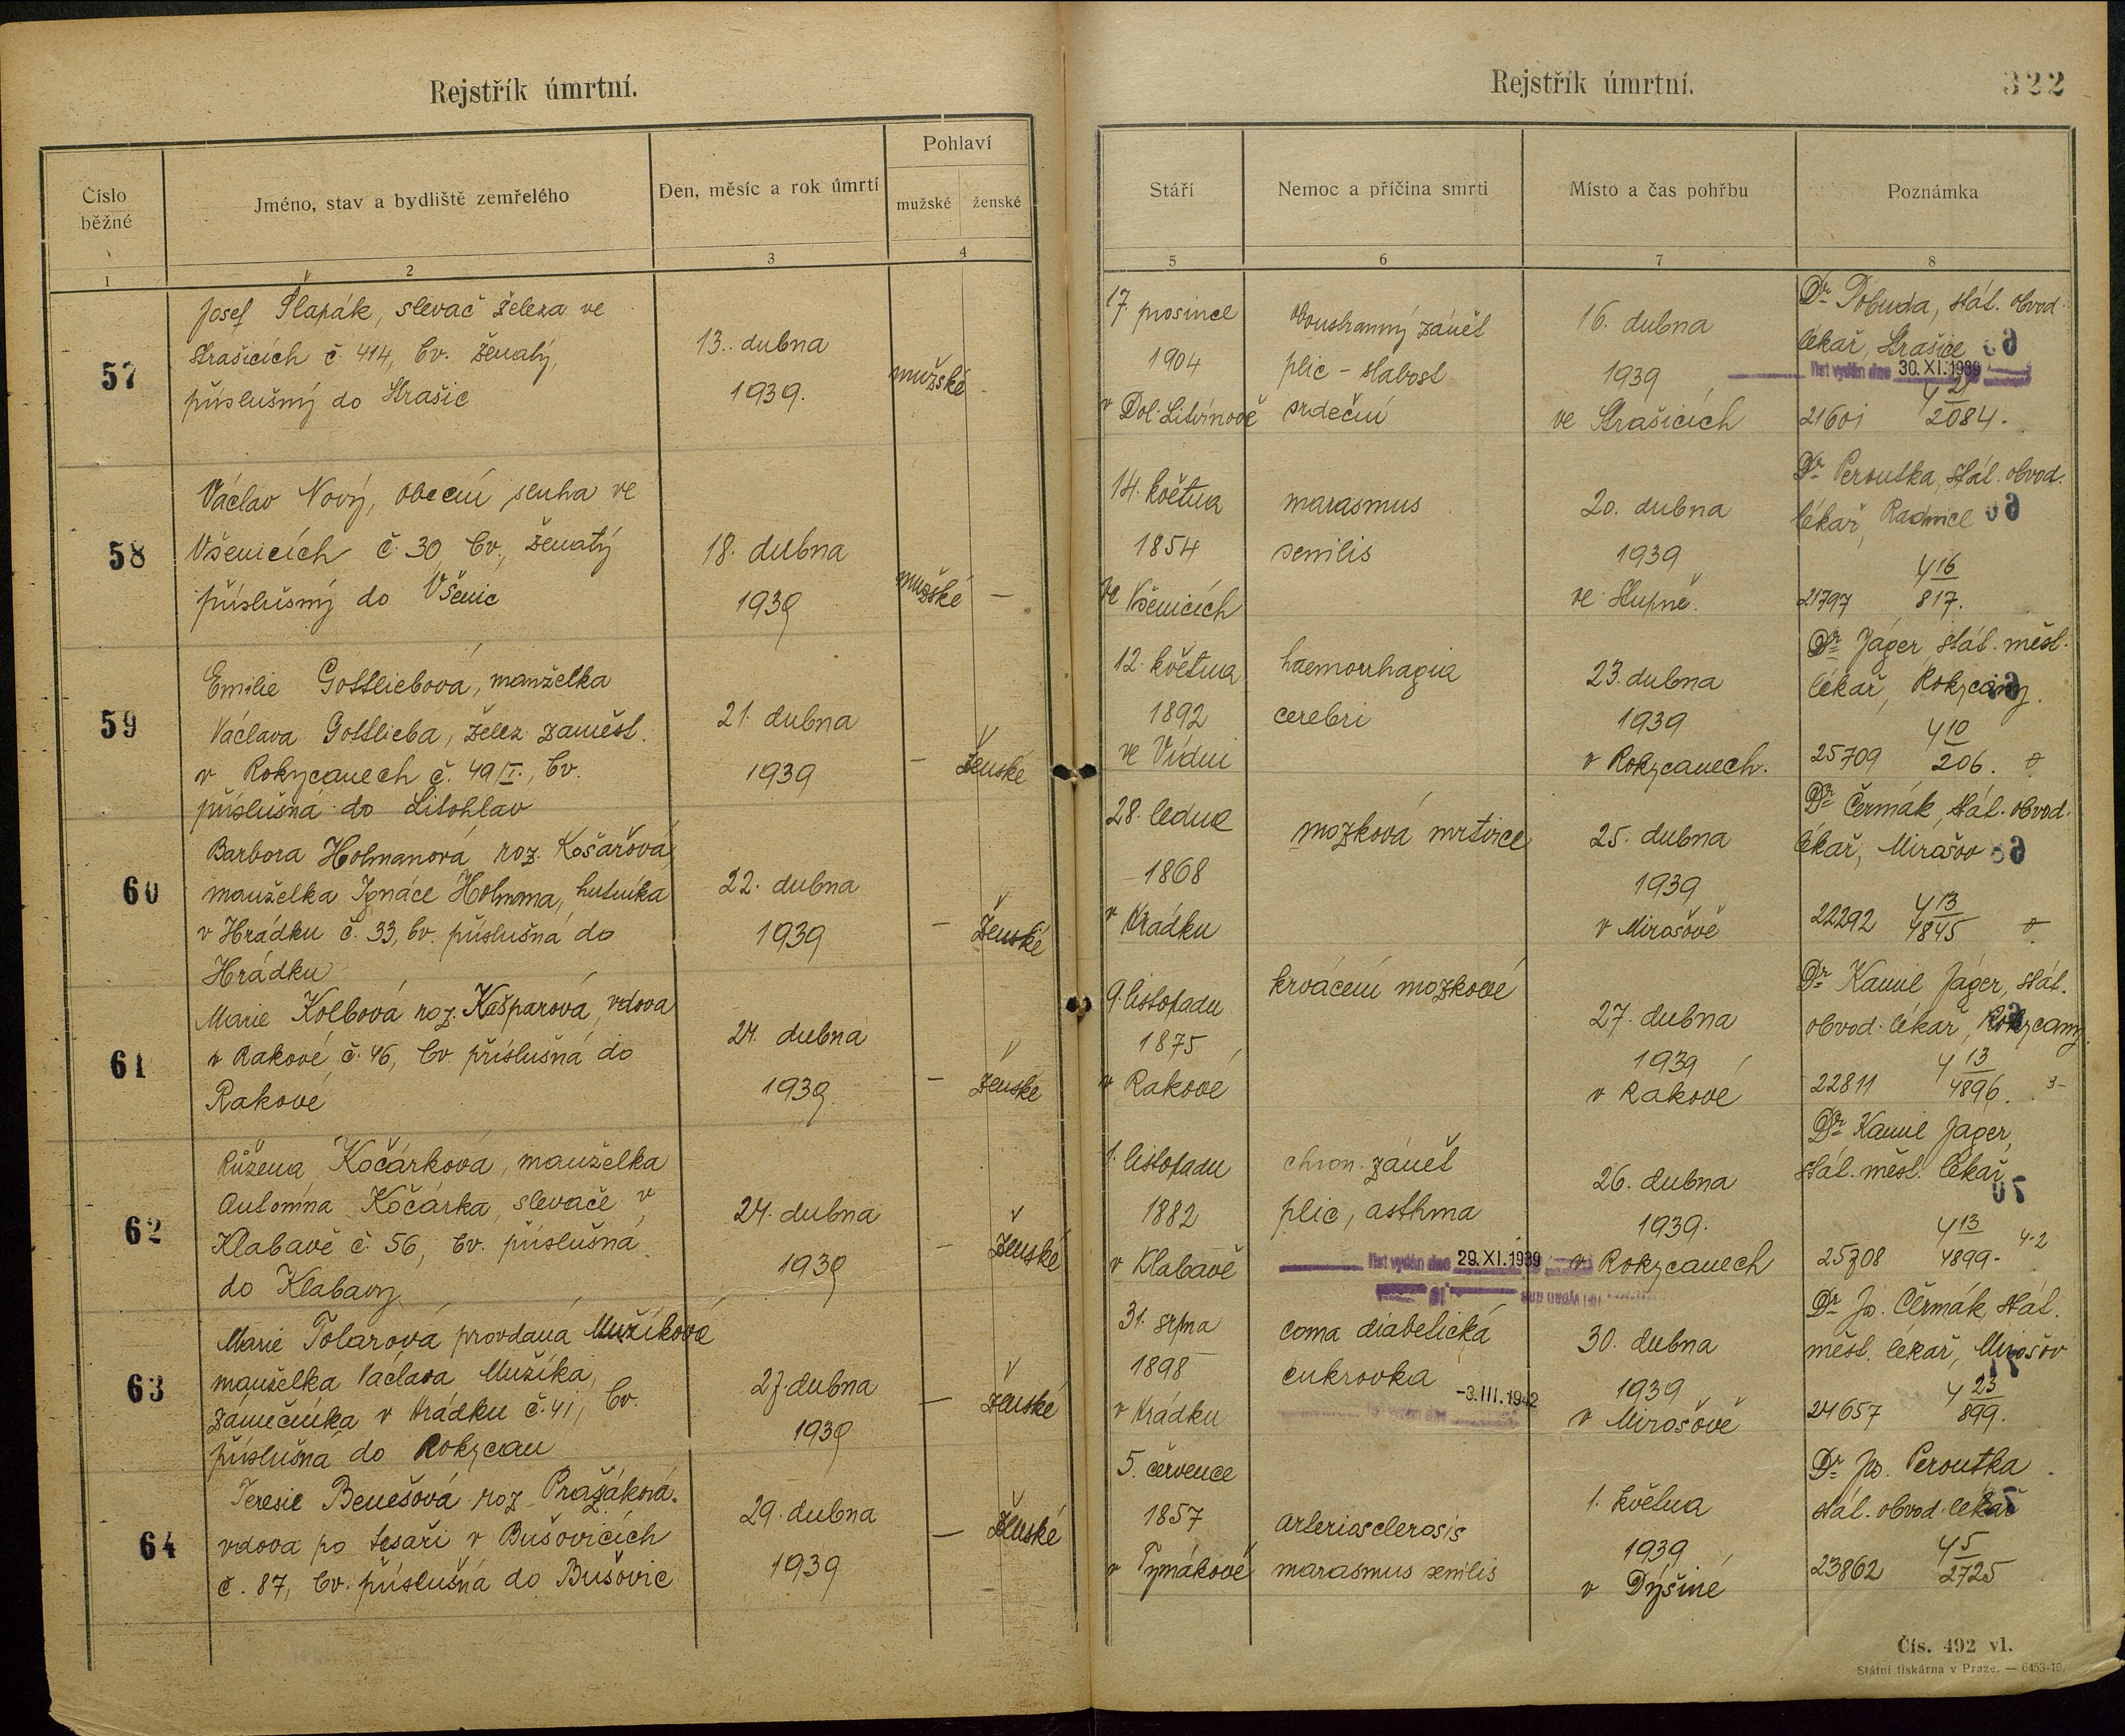 Rejstřík úmrtní.
Číslo běžné
Jméno, stav a bydliště zemřelého
Den, měsíc a rok úmrtí
Pohlaví
mužské ženské
1 2 3 4
57
Josef Šlapák, slevač železa ve
Strašicích č. 414, bv. ženatý,
příslušný do Strašic
13. dubna
1939.
mužské -
58
Václav Nový, obecní sluha ve
Všenicích č. 30, bv., ženatý
příslušný do Všenic
18. dubna
1939
mužské —
59
Emilie Gottliebová, manželka
Václava Gottlieba, želez. zaměst.
v Rokycanech č. 49/I., bv.
příslušná do Litohlav
21. dubna
1939
— ženské
60
Barbora Holmanová roz. Košařová,
manželka Ignáce Holmana, hutníka
v Hrádku č. 33, bv. příslušná do
Hrádku
22. dubna
1939
— ženské
61
Marie Kolbová roz. Kašparová, vdova
v Rakové č. 46, bv. příslušná do
Rakové
24. dubna
1939.
— ženské
62
Růžena Kočárková, manželka
Antonína Kočárka, slevače v
Klabavě č. 56, bv. příslušná
do Klabavy
24. dubna
1939
— ženské
63
Marie Tolarová provdaná Mužíková
manželka Václava Mužíka,
zámečníka v Hrádku č. 41, bv.
příslušná do Rokycan
27. dubna
1939
— ženské
64
Teresie Benešová roz. Pražáková.
vdova po tesaři v Bušovicích
č. 87, bv. příslušná do Bušovic
29. dubna
1939
— ženské
Rejstřík úmrtní.
322
Stáří
Nemoc a příčina smrti
Místo a čas pohřbu
Poznámka
5 6 7 8
17. prosince
1904
v Dol. Litvínově
oboustranný zánět
plic - slabost
srdeční
16. dubna
1939
ve Strašicích
Dr Pobuda, stát. obvod.
lékař, Strašice
list vydán dne 30. XI. 1939
21601 2084.
14. května
1854
ve Všenicích
marasmus
senilis
20. dubna
1939
ve Stupně.
Dr Peroutka, stát. obvod.
lékař, Radnice
4 16
21797 817.
12. května
1892
ve Vídni
haemorrhagia
cerebri
23. dubna
1939
v Rokycanech.
Dr Jäger stát. měst.
lékař, Rokycany.
4 10
25709 206.
28. ledna
1868
v Hrádku
mozková mrtvice
25. dubna
1939
v Mirošově
Dr Čermák, stát. obvod.
lékař, Mirošov
4 13
22292 4845
9. listopadu
1875
v Rakové
krvácení mozkové
27. dubna
1939
v Rakové
Dr Kamil Jäger, stát.
obvod. lékař, Rokycany.
4 13
22811 4896. 3-
1. listopadu
1882
v Klabavě
chron. zánět
plic, asthma
list vydán dne 29. XI. 1939
26. dubna
1939.
v Rokycanech
Dr Kamil Jäger,
stát. měst. lékař
4 13
25708 4899- 4-2
31. srpna
1898
v Hrádku
coma diabetická
cukrovka
-3. III. 1942
30. dubna
1939
v Mirošově
Dr Jos. Čermák, stát.
měst. lékař, Mirošov
4 23
24657 899.
5. července
1857
v Tymákově
arteriosclerosis
marasmus senilis
1. května
1939
v Dýšině
Dr Jos. Peroutka
stát. obvod. lékař
4 5
23862 2725
Čís. 492 vl.
Státní tiskárna v Praze. — 6453-19.